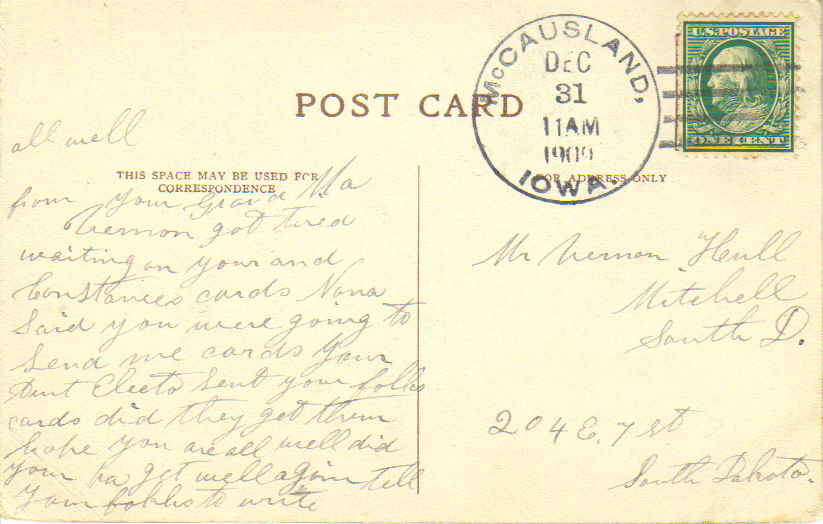 POST CARD
McCAUSLAND,
DEC
31
11AM
1909
IOWA.
U.S. POSTAGE
ONE CENT
all well
THIS SPACE MAY BE USED FOR
CORRESPONDENCE
FOR ADDRESS ONLY
from your Grand Ma
Vernon got tired
waiting on your and
Constances cards Nona
Said you were going to
Send me cards your
Aunt Electo Sent your folks
cards did they get them
hope you are all well did
your pa get well again tell
your folks to write
Mr Vernon Hull
Mitchell
South D.
204 E. 7 st
South Dakota.